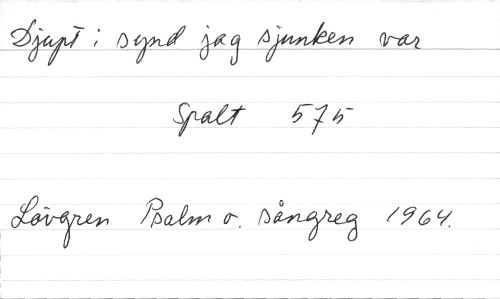 Djupt i synd jag sjunken var
Spalt 575
Lövgren Psalm o. sångreg 1964.